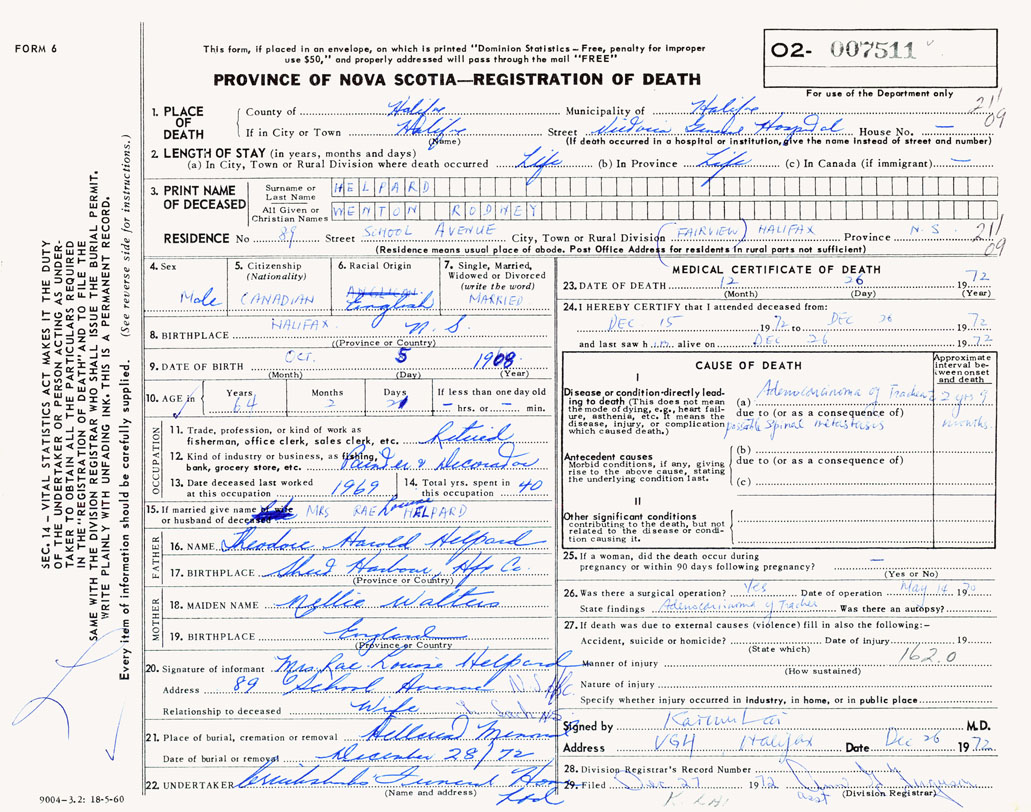 FORM 6
This form, if placed in an envelope, on which is printed "Dominion Statistics – Free, penalty for improper
use $50," and properly addressed will pass through the mail "FREE"
PROVINCE OF NOVA SCOTIA—REGISTRATION OF DEATH
O2- 007511
For use of the Department only
211
09
1. PLACE OF DEATH
County of Halifax Municipality of Halifax
If in City or Town Halifax Street Victoria General Hospital House No. —
(Name) (If death occurred in a hospital or institution, give the name instead of street and number)
2. LENGTH OF STAY (in years, months and days)
(a) In City, Town or Rural Division where death occurred Life (b) In Province Life (c) In Canada (if immigrant) —
3. PRINT NAME OF DECEASED
Surname or Last Name HELPARD
All Given or Christian Names WENTON RODNEY
RESIDENCE No 89 Street SCHOOL AVENUE City, Town or Rural Division (FAIRVIEW) HALIFAX Province N.S.
211
09
(Residence means usual place of abode. Post Office Address for residents in rural parts not sufficient)
4. Sex Male
5. Citizenship (Nationality) CANADIAN
6. Racial Origin ANGLICAN English
7. Single, Married, Widowed or Divorced (write the word) MARRIED
8. BIRTHPLACE HALIFAX N.S.
(Province or Country)
9. DATE OF BIRTH Oct. 5 1908
(Month) (Day) (Year)
10. AGE in Years 64 Months 2 Days 21 If less than one day old – hrs. or – min.
OCCUPATION
11. Trade, profession, or kind of work as
fisherman, office clerk, sales clerk, etc. Retired
12. Kind of industry or business, as fishing,
bank, grocery store, etc. Painter & Decorator
13. Date deceased last worked
at this occupation 1969
14. Total yrs. spent in
this occupation 40
15. If married give name of wife
or husband of deceased MRS RAE Louise HELPARD
FATHER
16. NAME Theodore Harold Helpard
17. BIRTHPLACE Sheet Harbour, Hfx Co.
(Province or Country)
MOTHER
18. MAIDEN NAME Nellie Walters
19. BIRTHPLACE England
(Province or Country)
20. Signature of informant Mrs. Rae Louise Helpard
Address 89 School Avenue
Relationship to deceased Wife
21. Place of burial, cremation or removal
Date of burial or removal December 28/72
22. UNDERTAKER Cruikshanks Funeral Home Ltd
(Name and address)
9004-3.2: 18-5-60
MEDICAL CERTIFICATE OF DEATH
23. DATE OF DEATH 12 26 1972
(Month) (Day) (Year)
24. I HEREBY CERTIFY that I attended deceased from:
DEC 15 1972 to DEC 26 1972
and last saw him alive on DEC 26 1972
CAUSE OF DEATH
Approximate interval between onset and death
I
Disease or condition directly leading to death (This does not mean the mode of dying, e.g., heart failure, asthenia, etc. It means the disease, injury, or complication which caused death.)
(a) Adenocarcinoma of Trachea 2 yrs 9 months.
due to (or as a consequence of)
possible Spinal metastasis
Antecedent causes
Morbid conditions, if any, giving rise to the above cause, stating the underlying condition last.
(b)
due to (or as a consequence of)
(c)
II
Other significant conditions
contributing to the death, but not related to the disease or condition causing it.
25. If a woman, did the death occur during
pregnancy or within 90 days following pregnancy? —
(Yes or No)
26. Was there a surgical operation? Yes Date of operation May 14 1970
State findings Adenocarcinoma of Trachea Was there an autopsy?
27. If death was due to external causes (violence) fill in also the following:–
Accident, suicide or homicide? Date of injury 19
(State which)
162.0
Manner of injury
(How sustained)
Nature of injury
Specify whether injury occurred in industry, in home, or in public place
Signed by M.D.
Address VGH Halifax Date Dec 26 1972
28. Division Registrar's Record Number
29. Filed Dec 27 1972
(Division Registrar)
SEC. 14 – VITAL STATISTICS ACT MAKES IT THE DUTY
OF THE UNDERTAKER OR PERSON ACTING AS UNDER-
TAKER TO OBTAIN ALL THE PARTICULARS REQUIRED
IN THE "REGISTRATION OF DEATH" AND TO FILE THE
SAME WITH THE DIVISION REGISTRAR WHO SHALL ISSUE THE BURIAL PERMIT.
WRITE PLAINLY WITH UNFADING INK. THIS IS A PERMANENT RECORD.
Every item of information should be carefully supplied. (See reverse side for instructions.)